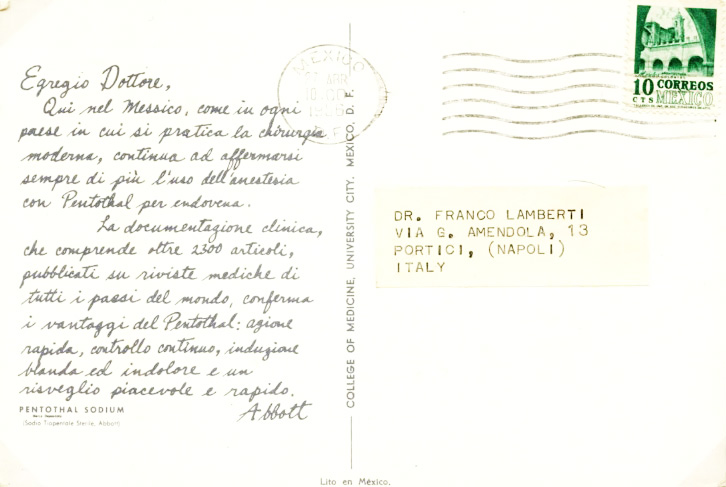 Egregio Dottore,
Qui nel Messico, come in ogni
paese in cui si pratica la chirurgia
moderna, continua ad affermarsi
sempre di più l'uso dell'anestesia
con Pentothal per endovena.
La documentazione clinica,
che comprende oltre 2300 articoli,
pubblicati su riviste mediche di
tutti i paesi del mondo, conferma
i vantaggi del Pentothal: azione
rapida, controllo continuo, induzione
blanda ed indolore e un
risveglio piacevole e rapido.
Abbott
PENTOTHAL SODIUM
(Sodio Tiopentale Sterile, Abbott)
COLLEGE OF MEDICINE, UNIVERSITY CITY, MEXICO, D. F.
Lito en México.
MEXICO
ABR
10
CORREOS
CTS
MEXICO
DR. FRANCO LAMBERTI
VIA G. AMENDOLA, 13
PORTICI, (NAPOLI)
ITALY